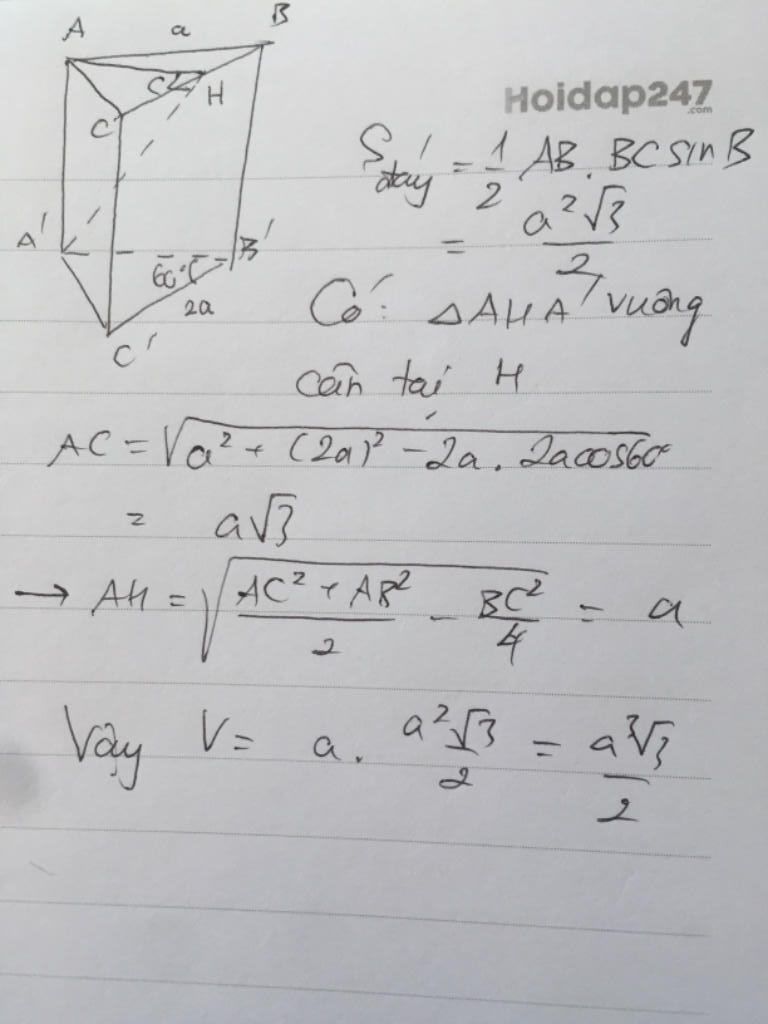 A a B
C H
A' 60° B'
2a
C'
Hoidap247
.com
S đáy = 1/2 AB. BC sin B
= a²√3/2
Có: △AHA' vuông
cân tại H
AC = √(a² + (2a)² - 2a. 2a cos60°)
= a√3
→ AH = √((AC² + AB²)/2 - BC²/4) = a
Vậy V = a. a²√3/2 = a³√3/2